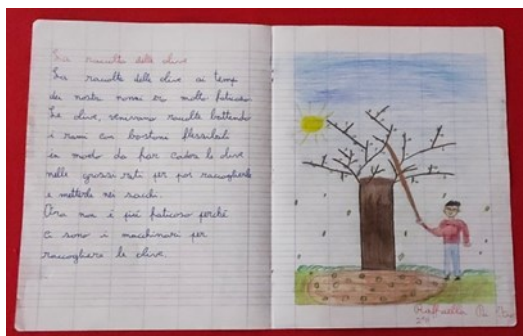 La raccolta delle olive
La raccolta delle olive ai tempi
dei nostri nonni era molto faticosa.
Le olive, venivano raccolte battendo
i rami con bastoni flessibili
in modo da far cadere le olive
nelle grossi reti per poi raccoglierle
e metterle nei sacchi.
Ora non è più faticoso perché
ci sono i macchinari per
raccogliere le olive.
Raffaella